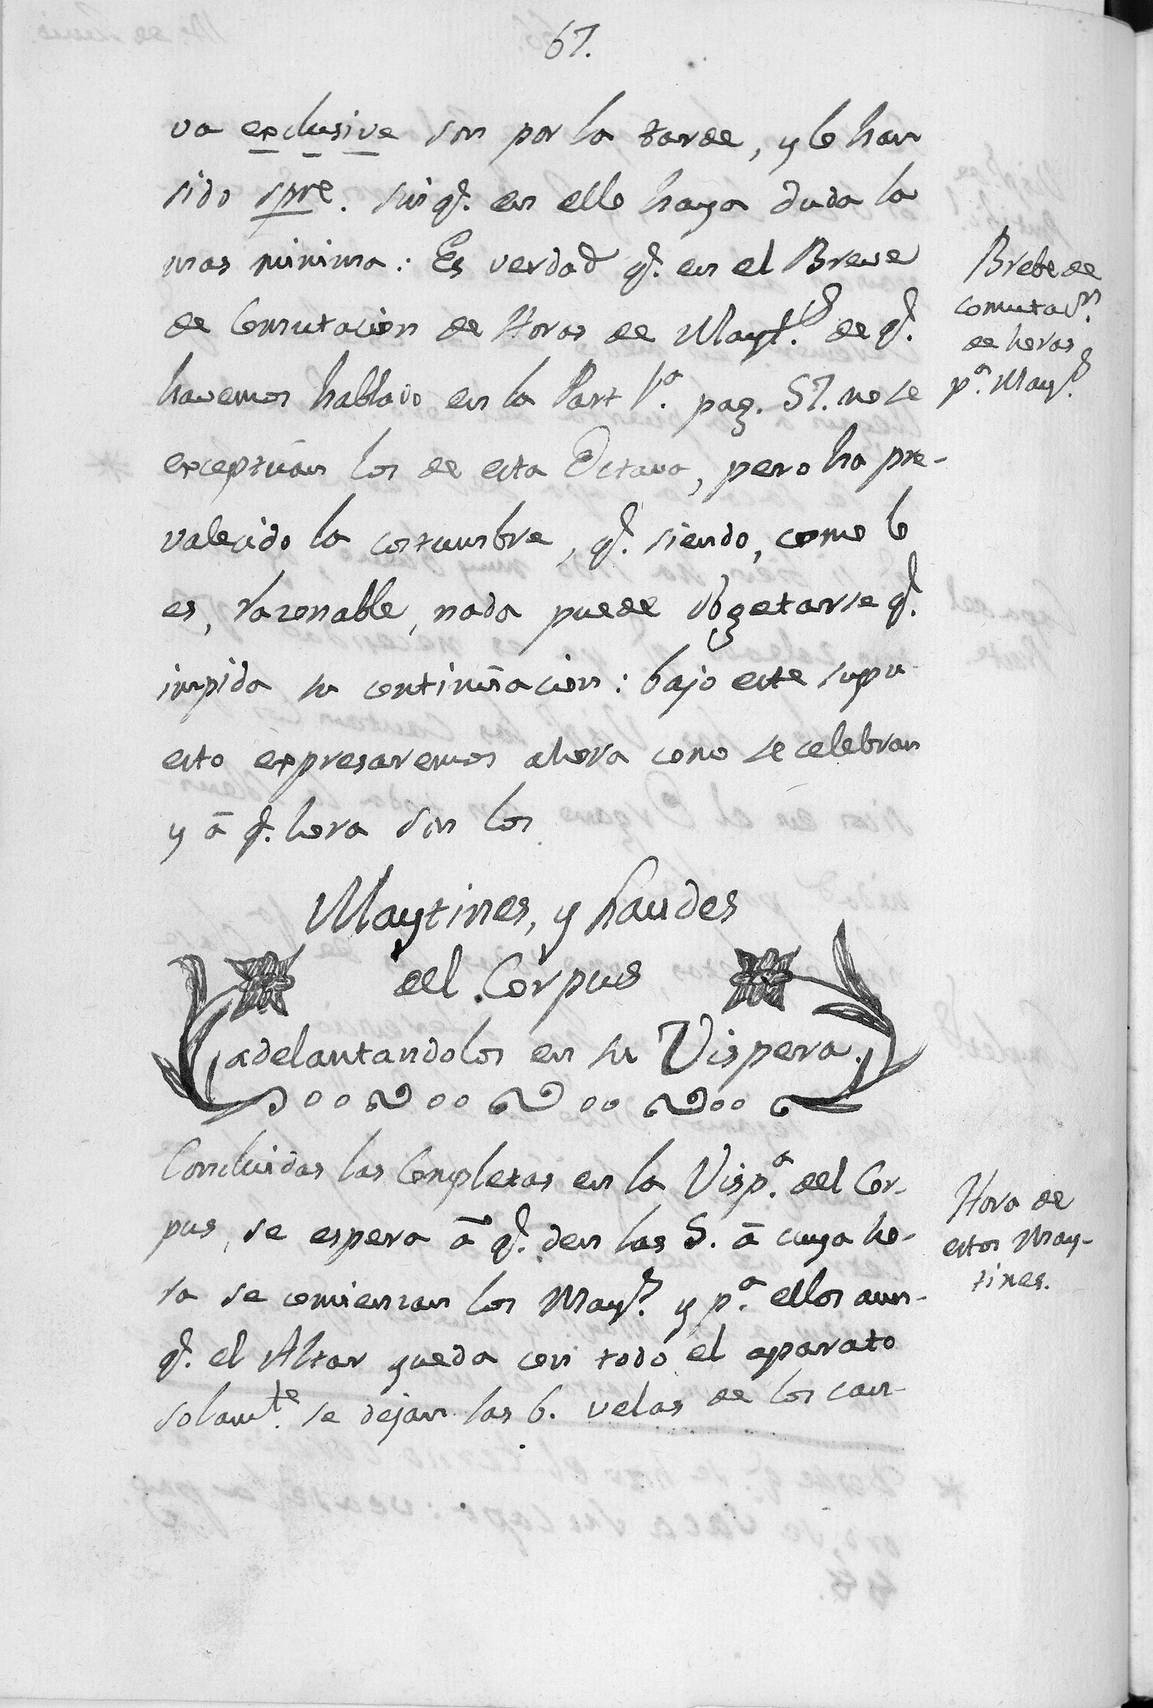 67.
va exclusive son por la tarde, y lo han
sido spre. sin q.e en ello haya duda la
mas minima: Es verdad q.e en el Breve
de Comutacion de Horas de Mayt.s de q.e
havemos hablado en la Part 1.a pag. 57. no se
exceptúan los de esta Octava, pero ha pre-
valecido la costumbre, q.e siendo, como lo
es, razonable, nada puede obgetarse q.e
impida su continuacion: bajo este supu-
esto expresaremos ahora como se celebran
y â q.e hora son los
Maytines, y Laudes
del Corpus
adelantandolos en su Vispera.
Concluidas las Completas en la Visp.a del Cor-
pus, se espera â q.e den las 5. â cuya ho-
ra se comienzan los May.s y p.a ellos aun-
q.e el Altar queda con todo el aparato
solam.te se dejan las 6. velas de los can-
Brebe de
comutac.n
de horas
p.a May.s
Hora de
estos May-
tines.